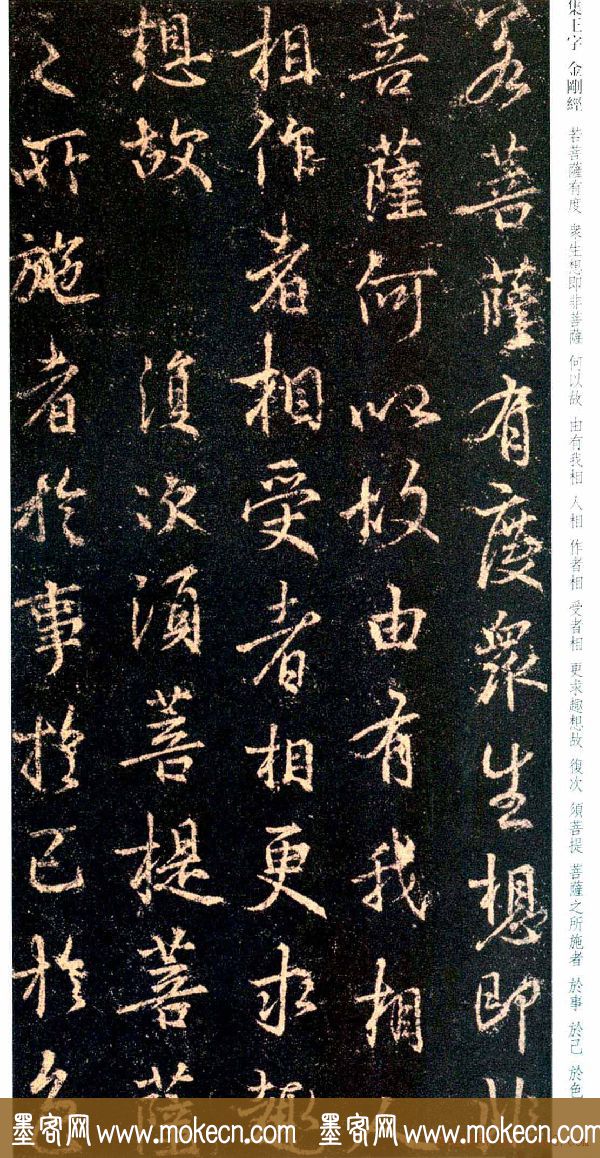 集王字 金剛經 若菩薩有度 衆生想即非菩薩 何以故 由有我相 人相 作者相 受者相 更求趣想故 復次 須菩提 菩薩之所施者 於事 於己 於色
若菩薩有度衆生想即非
菩薩何以故由有我相人
相作者相受者相更求趣
想故 復次須菩提菩薩
之所施者於事於己於色
墨客网 www.mokecn.com 墨客网 www.mokecn.com